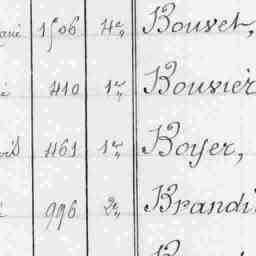 1506 4e Bouvet,
410 1er Bouvier
461 1er Boyer,
996 2e Brandi